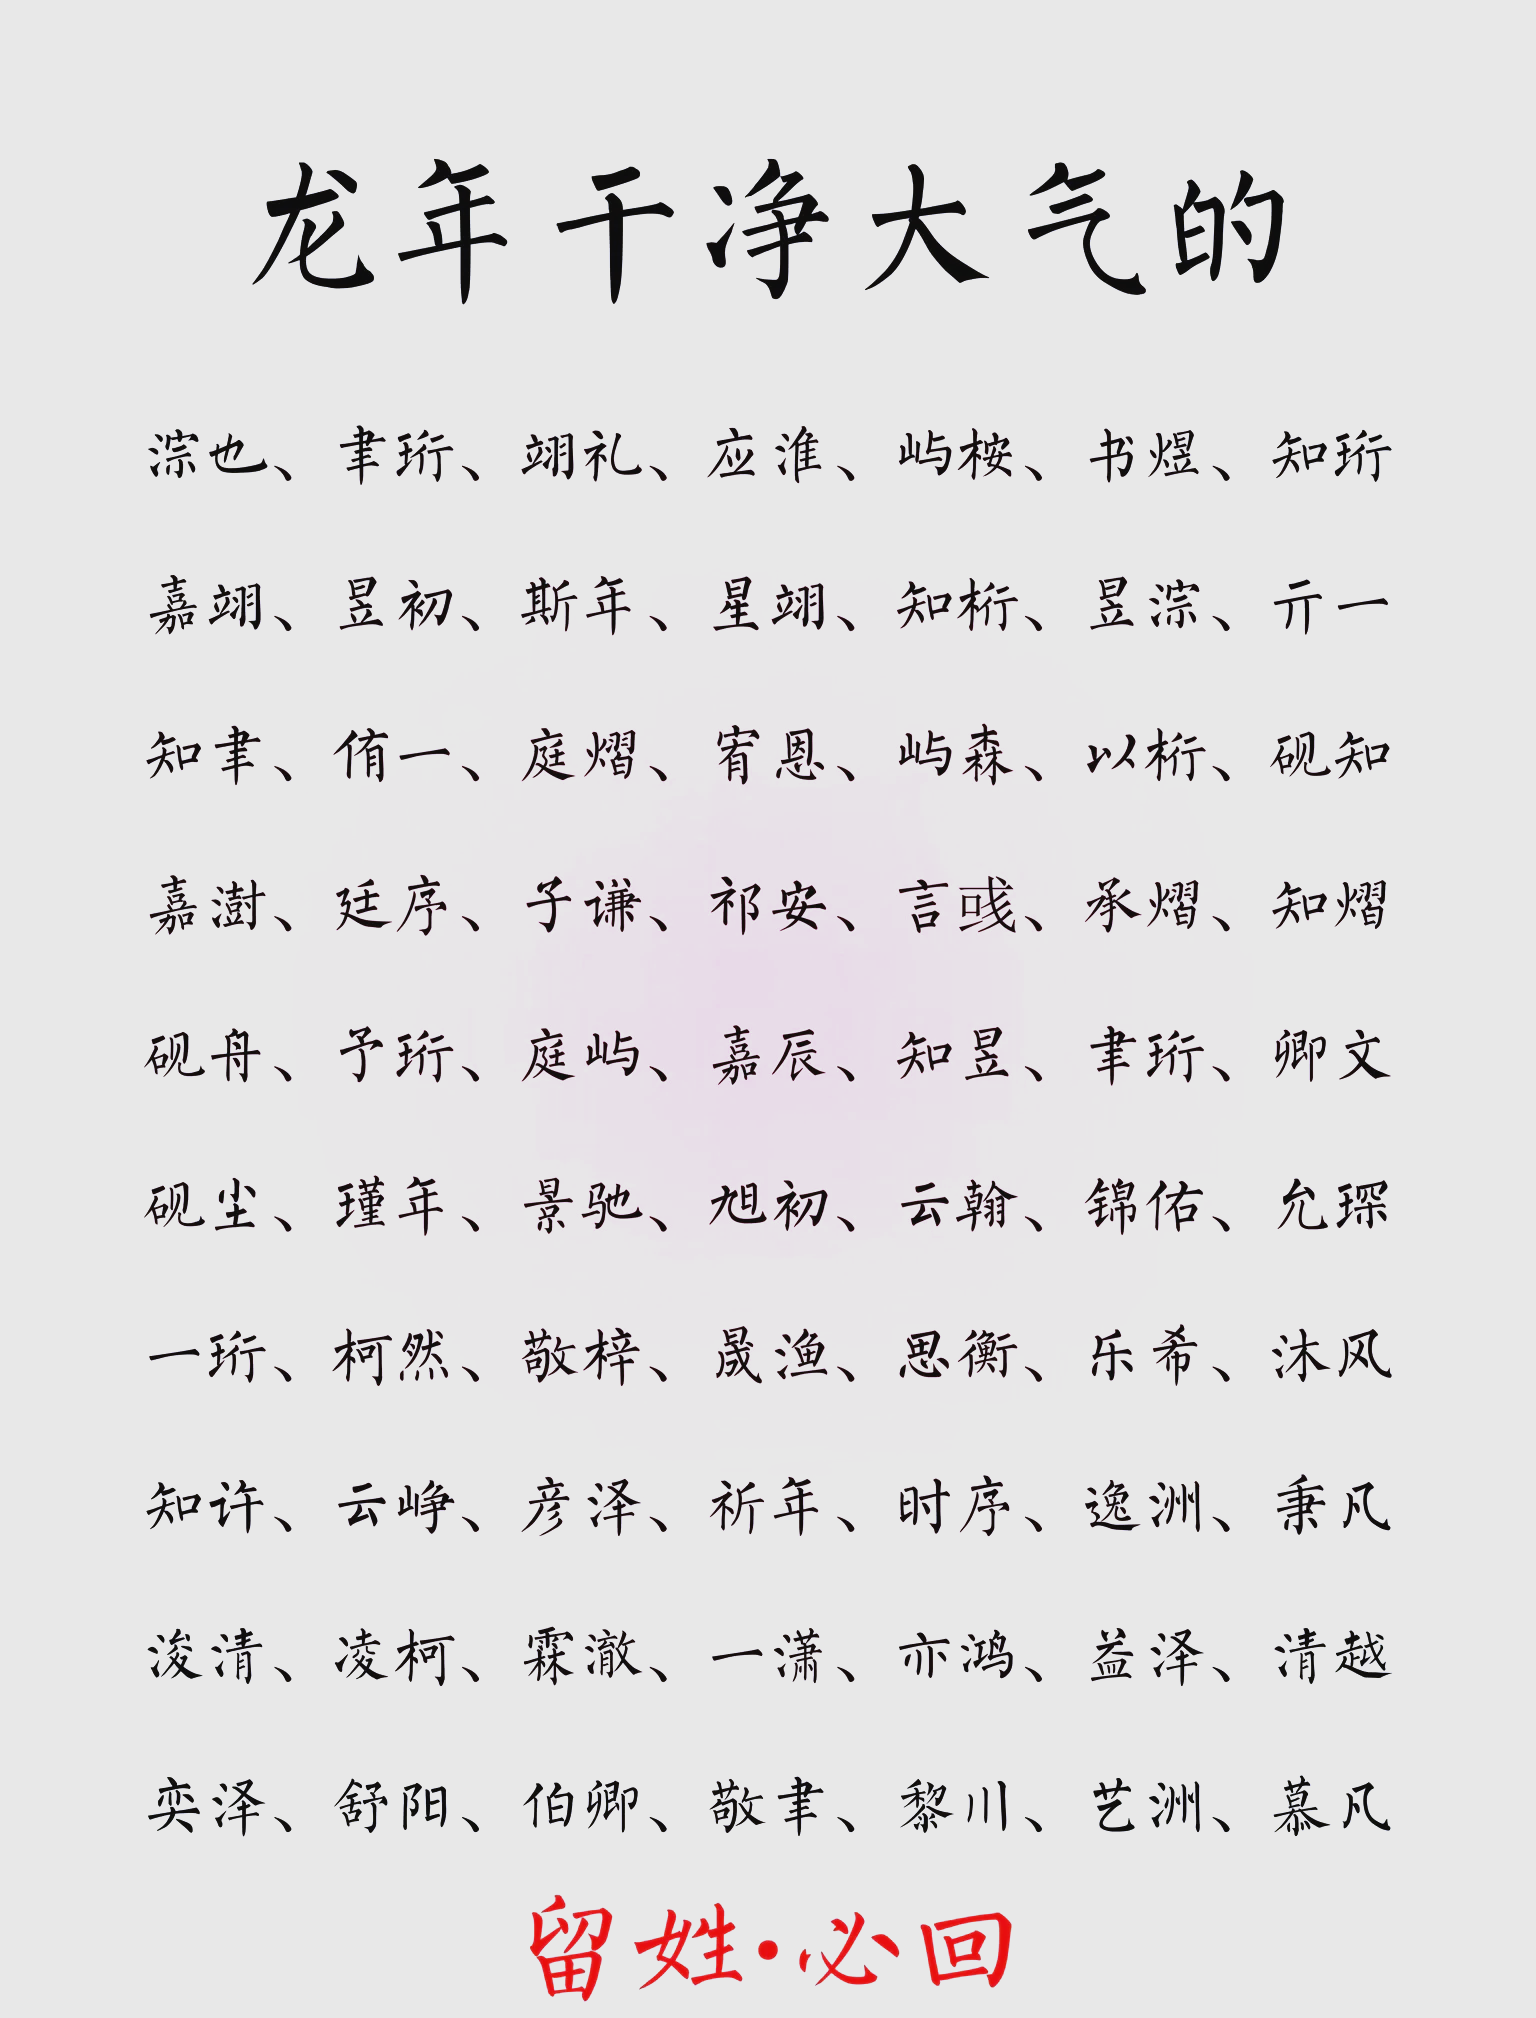 龙年干净大气的
淙也、聿珩、翊礼、应淮、屿桉、书煜、知珩
嘉翊、昱初、斯年、星翊、知桁、昱淙、亓一
知聿、侑一、庭熠、宥恩、屿森、以桁、砚知
嘉澍、廷序、子谦、祁安、言彧、承熠、知熠
砚舟、予珩、庭屿、嘉辰、知昱、聿珩、卿文
砚尘、瑾年、景驰、旭初、云翰、锦佑、允琛
一珩、柯然、敬梓、晟渔、思衡、乐希、沐风
知许、云峥、彦泽、祈年、时序、逸洲、秉凡
浚清、凌柯、霖澈、一潇、亦鸿、益泽、清越
奕泽、舒阳、伯卿、敬聿、黎川、艺洲、慕凡
留姓·必回